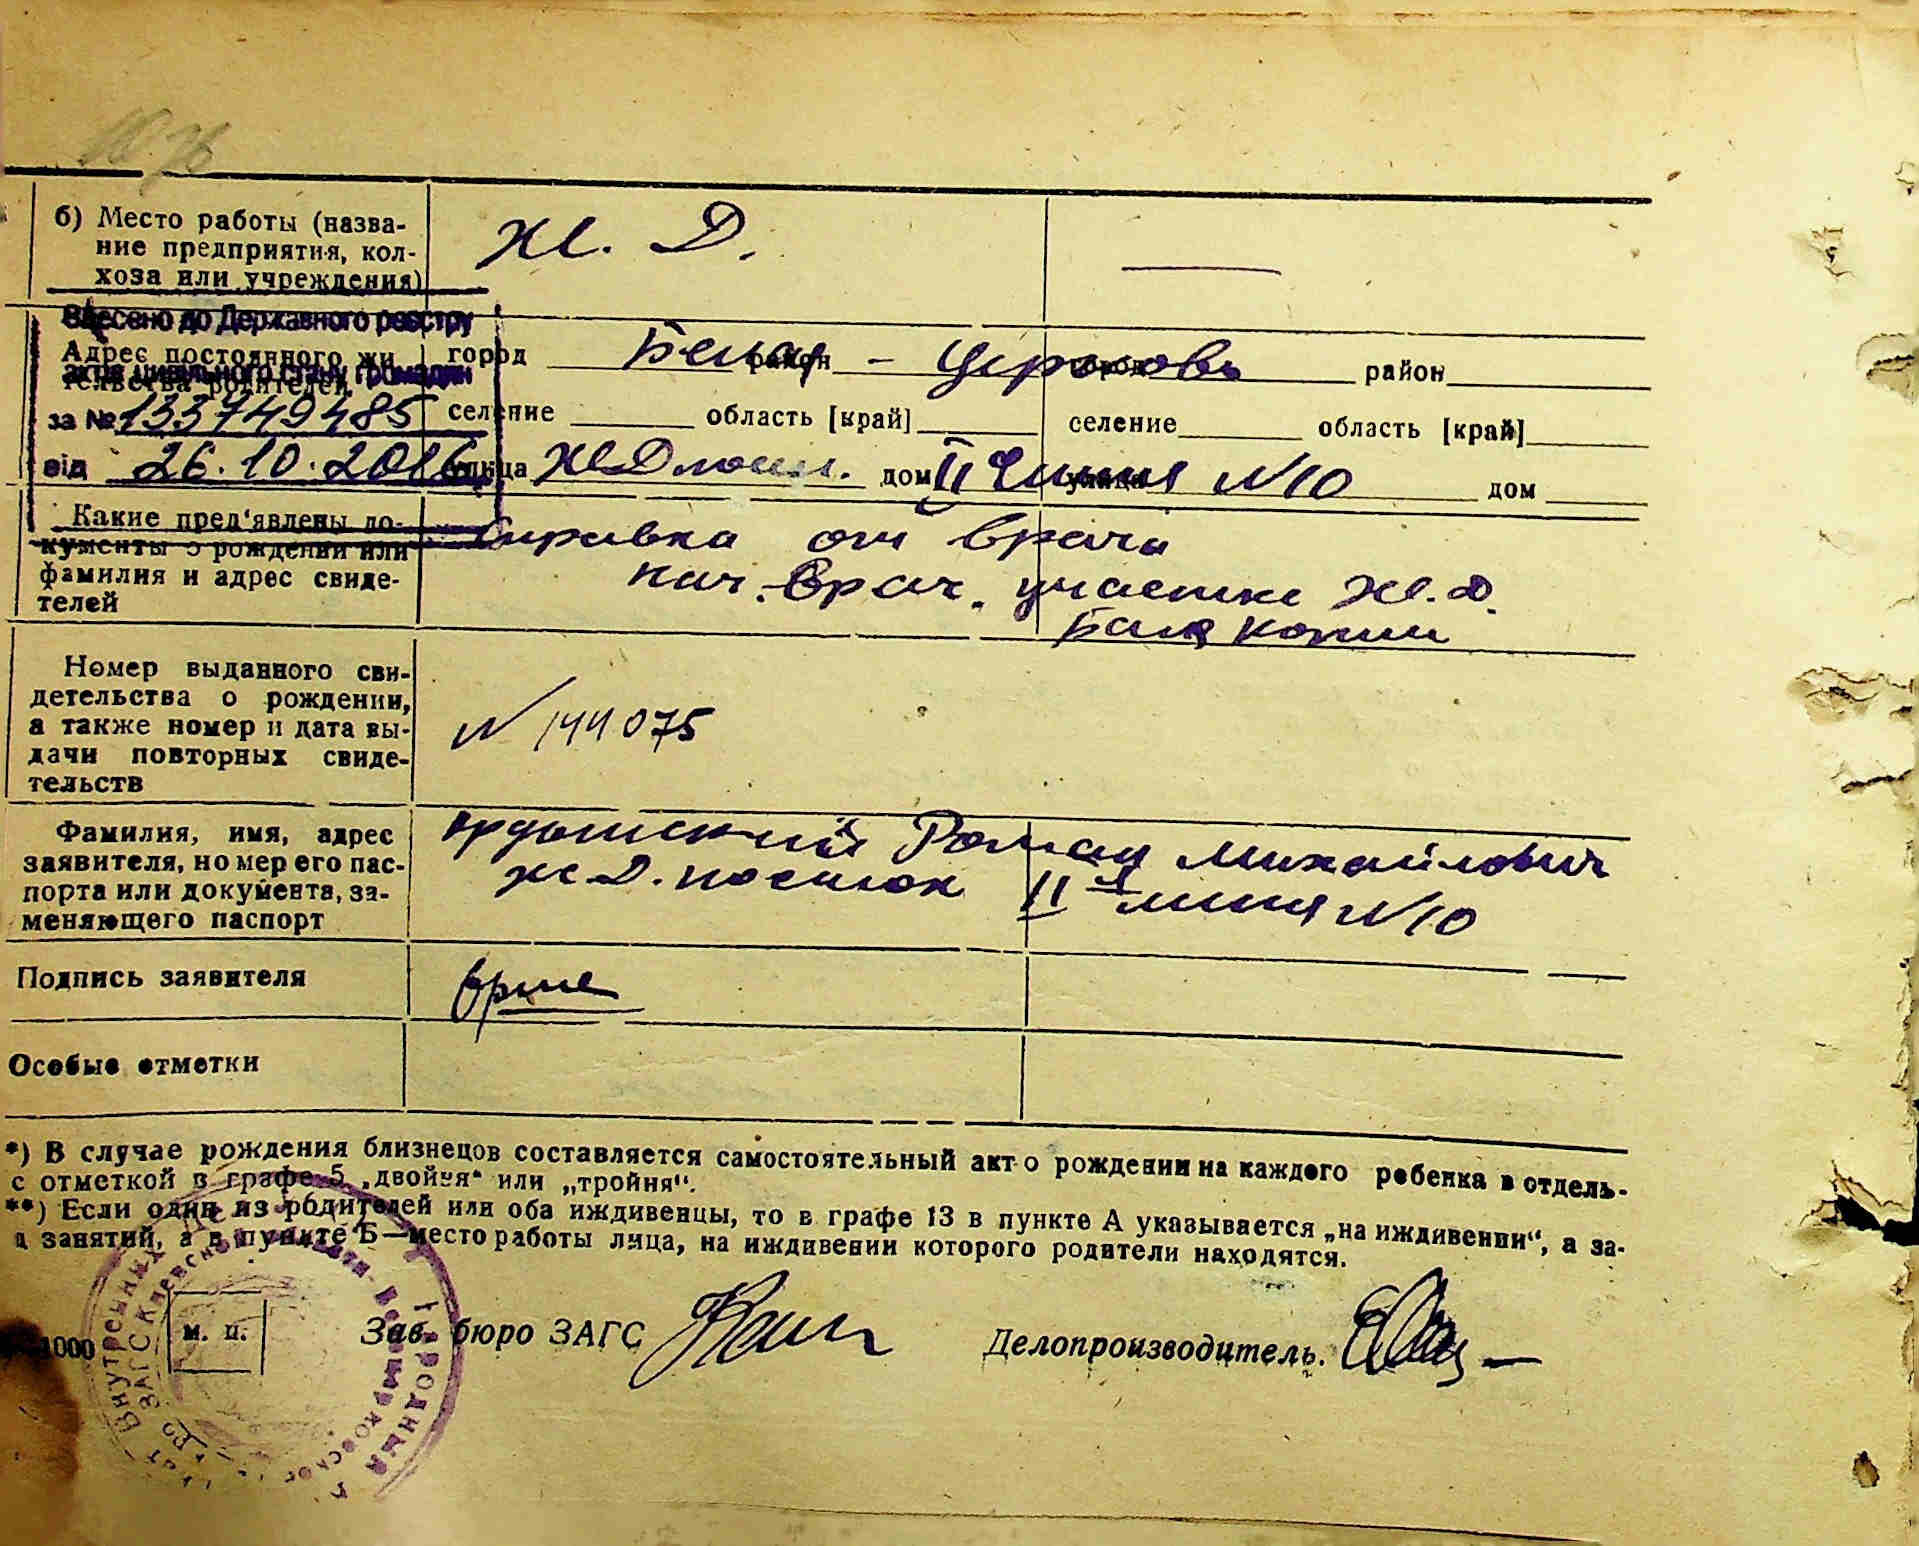 б) Место работы (назва-
ние предприятия, кол-
хоза или учреждения)
Ж. Д.
Внесено до Державного реєстру
актів цивільного стану громадян
за № 133749485
від 26.10.2016
Адрес постоянного жи
тельства родителей
город Белая - Церковь район город район
селение область [край] селение область [край]
улица ЖД дом II линия N10 улица дом
Какие пред'явлены до-
кументы о рождении или
фамилия и адрес свиде-
телей
Справка от врача
нач. врач. участка Ж.Д.
Номер выданного сви-
детельства о рождении,
а также номер и дата вы-
дачи повторных свиде-
тельств
N 144075
Фамилия, имя, адрес
заявителя, номер его пас-
порта или документа, за-
меняющего паспорт
Роман Михайлович
ж Д. поселок II линия N10
Подпись заявителя
Особые отметки
*) В случае рождения близнецов составляется самостоятельный акт о рождении на каждого ребенка в отдель-
с отметкой в графе 5 „двойня“ или „тройня“.
**) Если один из родителей или оба иждивенцы, то в графе 13 в пункте А указывается „на иждивении“, а за-
а занятий, а в пункте Б—место работы лица, на иждивении которого родители находятся.
1000
м. п.
Зав. бюро ЗАГС
Делопроизводитель.
Народный
Внутренних Дел
ЗАГС Киевской